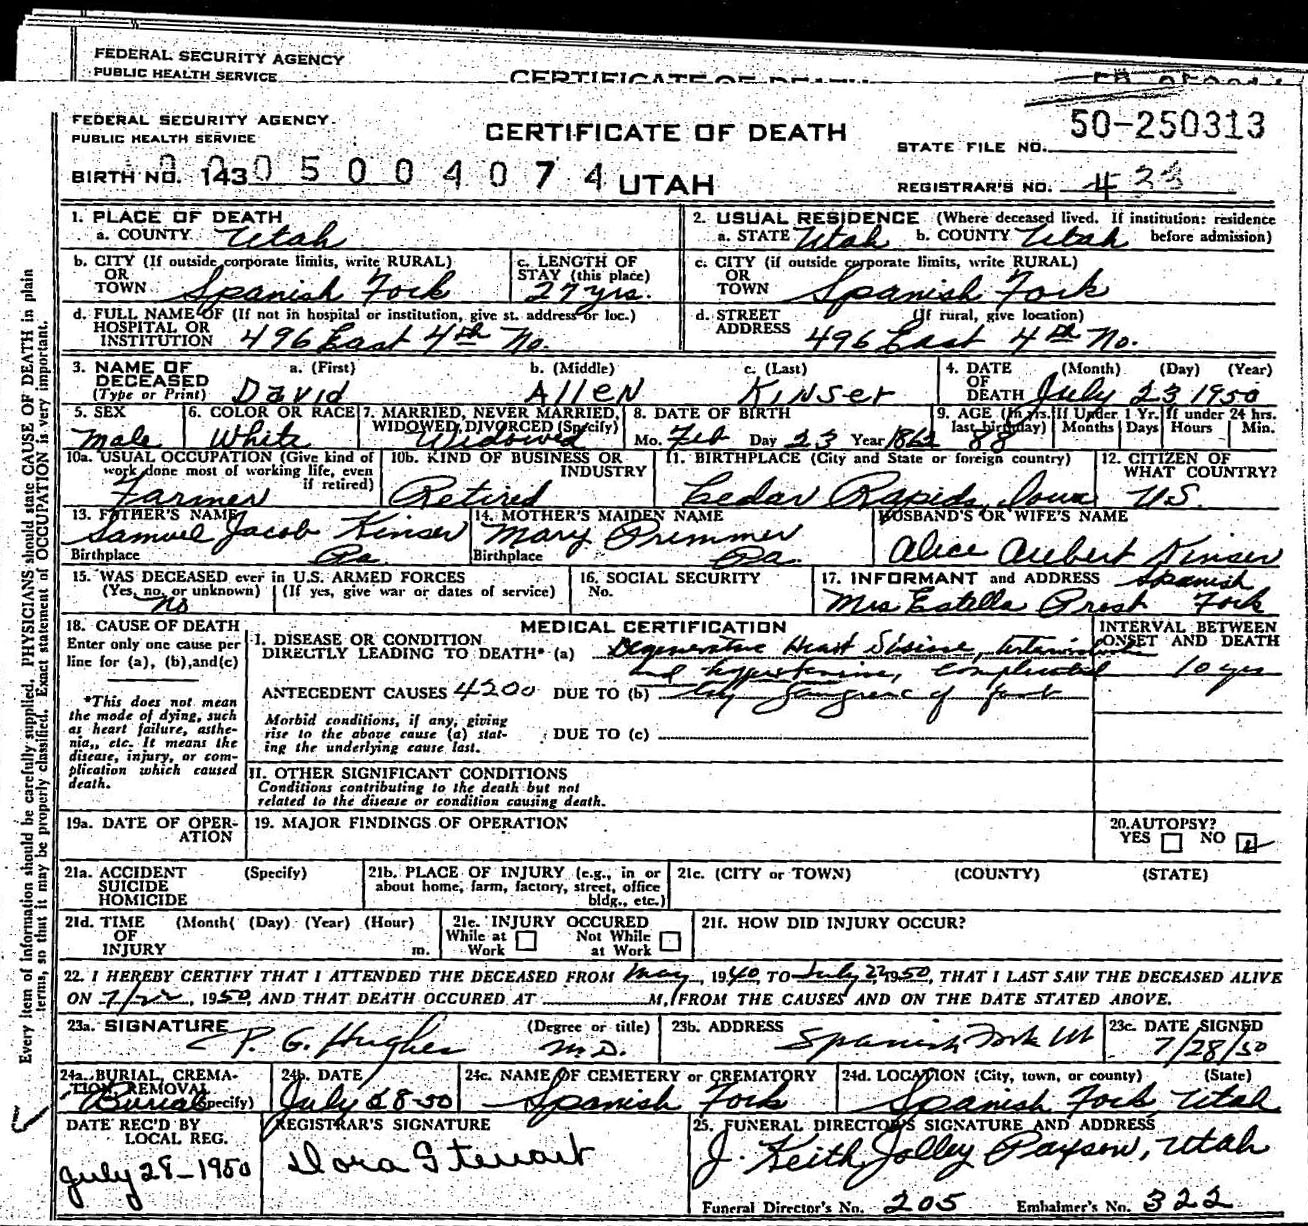 FEDERAL SECURITY AGENCY
PUBLIC HEALTH SERVICE
CERTIFICATE OF DEATH
FEDERAL SECURITY AGENCY
PUBLIC HEALTH SERVICE
CERTIFICATE OF DEATH
STATE FILE NO. 50-250313
BIRTH NO. 143 0 5 0 0 4 0 7 4 UTAH
REGISTRAR'S NO. 423
Every item of information should be carefully supplied. PHYSICIANS should state CAUSE OF DEATH in plain
terms, so that it may be properly classified. Exact statement of OCCUPATION is very important.
1. PLACE OF DEATH
a. COUNTY Utah
2. USUAL RESIDENCE (Where deceased lived. If institution: residence
a. STATE Utah b. COUNTY Utah before admission)
b. CITY (If outside corporate limits, write RURAL)
OR
TOWN Spanish Fork
c. LENGTH OF
STAY (this place)
27 yrs.
c. CITY (if outside corporate limits, write RURAL)
OR
TOWN Spanish Fork
d. FULL NAME OF (If not in hospital or institution, give st. address or loc.)
HOSPITAL OR
INSTITUTION 496 East 4th No.
d. STREET (If rural, give location)
ADDRESS 496 East 4th No.
3. NAME OF a. (First) b. (Middle) c. (Last)
DECEASED
(Type or Print) David Allen Kinser
4. DATE (Month) (Day) (Year)
OF
DEATH July 23 1950
5. SEX
Male
6. COLOR OR RACE
White
7. MARRIED, NEVER MARRIED,
WIDOWED, DIVORCED (Specify)
Widowed
8. DATE OF BIRTH
Mo. Feb Day 23 Year 1862
9. AGE (In yrs. last birthday) 88
If Under 1 Yr. Months Days
If under 24 hrs. Hours Min.
10a. USUAL OCCUPATION (Give kind of
work done most of working life, even
if retired)
Farmer
10b. KIND OF BUSINESS OR
INDUSTRY
Retired
11. BIRTHPLACE (City and State or foreign country)
Cedar Rapids, Iowa
12. CITIZEN OF
WHAT COUNTRY?
U.S.
13. FATHER'S NAME
Samuel Jacob Kinser
Birthplace Pa.
14. MOTHER'S MAIDEN NAME
Mary Primmer
Birthplace Pa.
HUSBAND'S OR WIFE'S NAME
Alice Aubert Kinser
15. WAS DECEASED ever in U.S. ARMED FORCES
(Yes, no, or unknown) (If yes, give war or dates of service)
No
16. SOCIAL SECURITY
No.
17. INFORMANT and ADDRESS Spanish
Mrs Estella Prest Fork
18. CAUSE OF DEATH
Enter only one cause per
line for (a), (b), and (c)
*This does not mean
the mode of dying, such
as heart failure, asthe-
nia, etc. It means the
disease, injury, or com-
plication which caused
death.
MEDICAL CERTIFICATION
INTERVAL BETWEEN
ONSET AND DEATH
I. DISEASE OR CONDITION
DIRECTLY LEADING TO DEATH* (a) Degenerative Heart Disease,
and hypertension, complicated 10 yrs
ANTECEDENT CAUSES 4200 DUE TO (b) by gangrene of foot
Morbid conditions, if any, giving
rise to the above cause (a) stat-
ing the underlying cause last.
DUE TO (c)
II. OTHER SIGNIFICANT CONDITIONS
Conditions contributing to the death but not
related to the disease or condition causing death.
19a. DATE OF OPER-
ATION
19. MAJOR FINDINGS OF OPERATION
20. AUTOPSY?
YES NO
21a. ACCIDENT (Specify)
SUICIDE
HOMICIDE
21b. PLACE OF INJURY (e.g., in or
about home, farm, factory, street, office
bldg., etc.)
21c. (CITY or TOWN) (COUNTY) (STATE)
21d. TIME (Month( (Day) (Year) (Hour)
OF
INJURY m.
21e. INJURY OCCURED
While at Work Not While at Work
21f. HOW DID INJURY OCCUR?
22. I HEREBY CERTIFY THAT I ATTENDED THE DECEASED FROM May, 1940, TO July 22, 1950, THAT I LAST SAW THE DECEASED ALIVE
ON 7/22, 1950, AND THAT DEATH OCCURED AT M, FROM THE CAUSES AND ON THE DATE STATED ABOVE.
23a. SIGNATURE (Degree or title)
P. G. Hughes M.D.
23b. ADDRESS
Spanish Fork Ut
23c. DATE SIGNED
7/28/50
24a. BURIAL, CREMA-
TION REMOVAL
Burial (Specify)
24b. DATE
July 28-50
24c. NAME OF CEMETERY or CREMATORY
Spanish Fork
24d. LOCATION (City, town, or county) (State)
Spanish Fork Utah
DATE REC'D BY
LOCAL REG.
July 28-1950
REGISTRAR'S SIGNATURE
Dora Stewart
25. FUNERAL DIRECTOR'S SIGNATURE AND ADDRESS
J. Keith Jolley Payson, Utah
Funeral Director's No. 205 Embalmer's No. 322